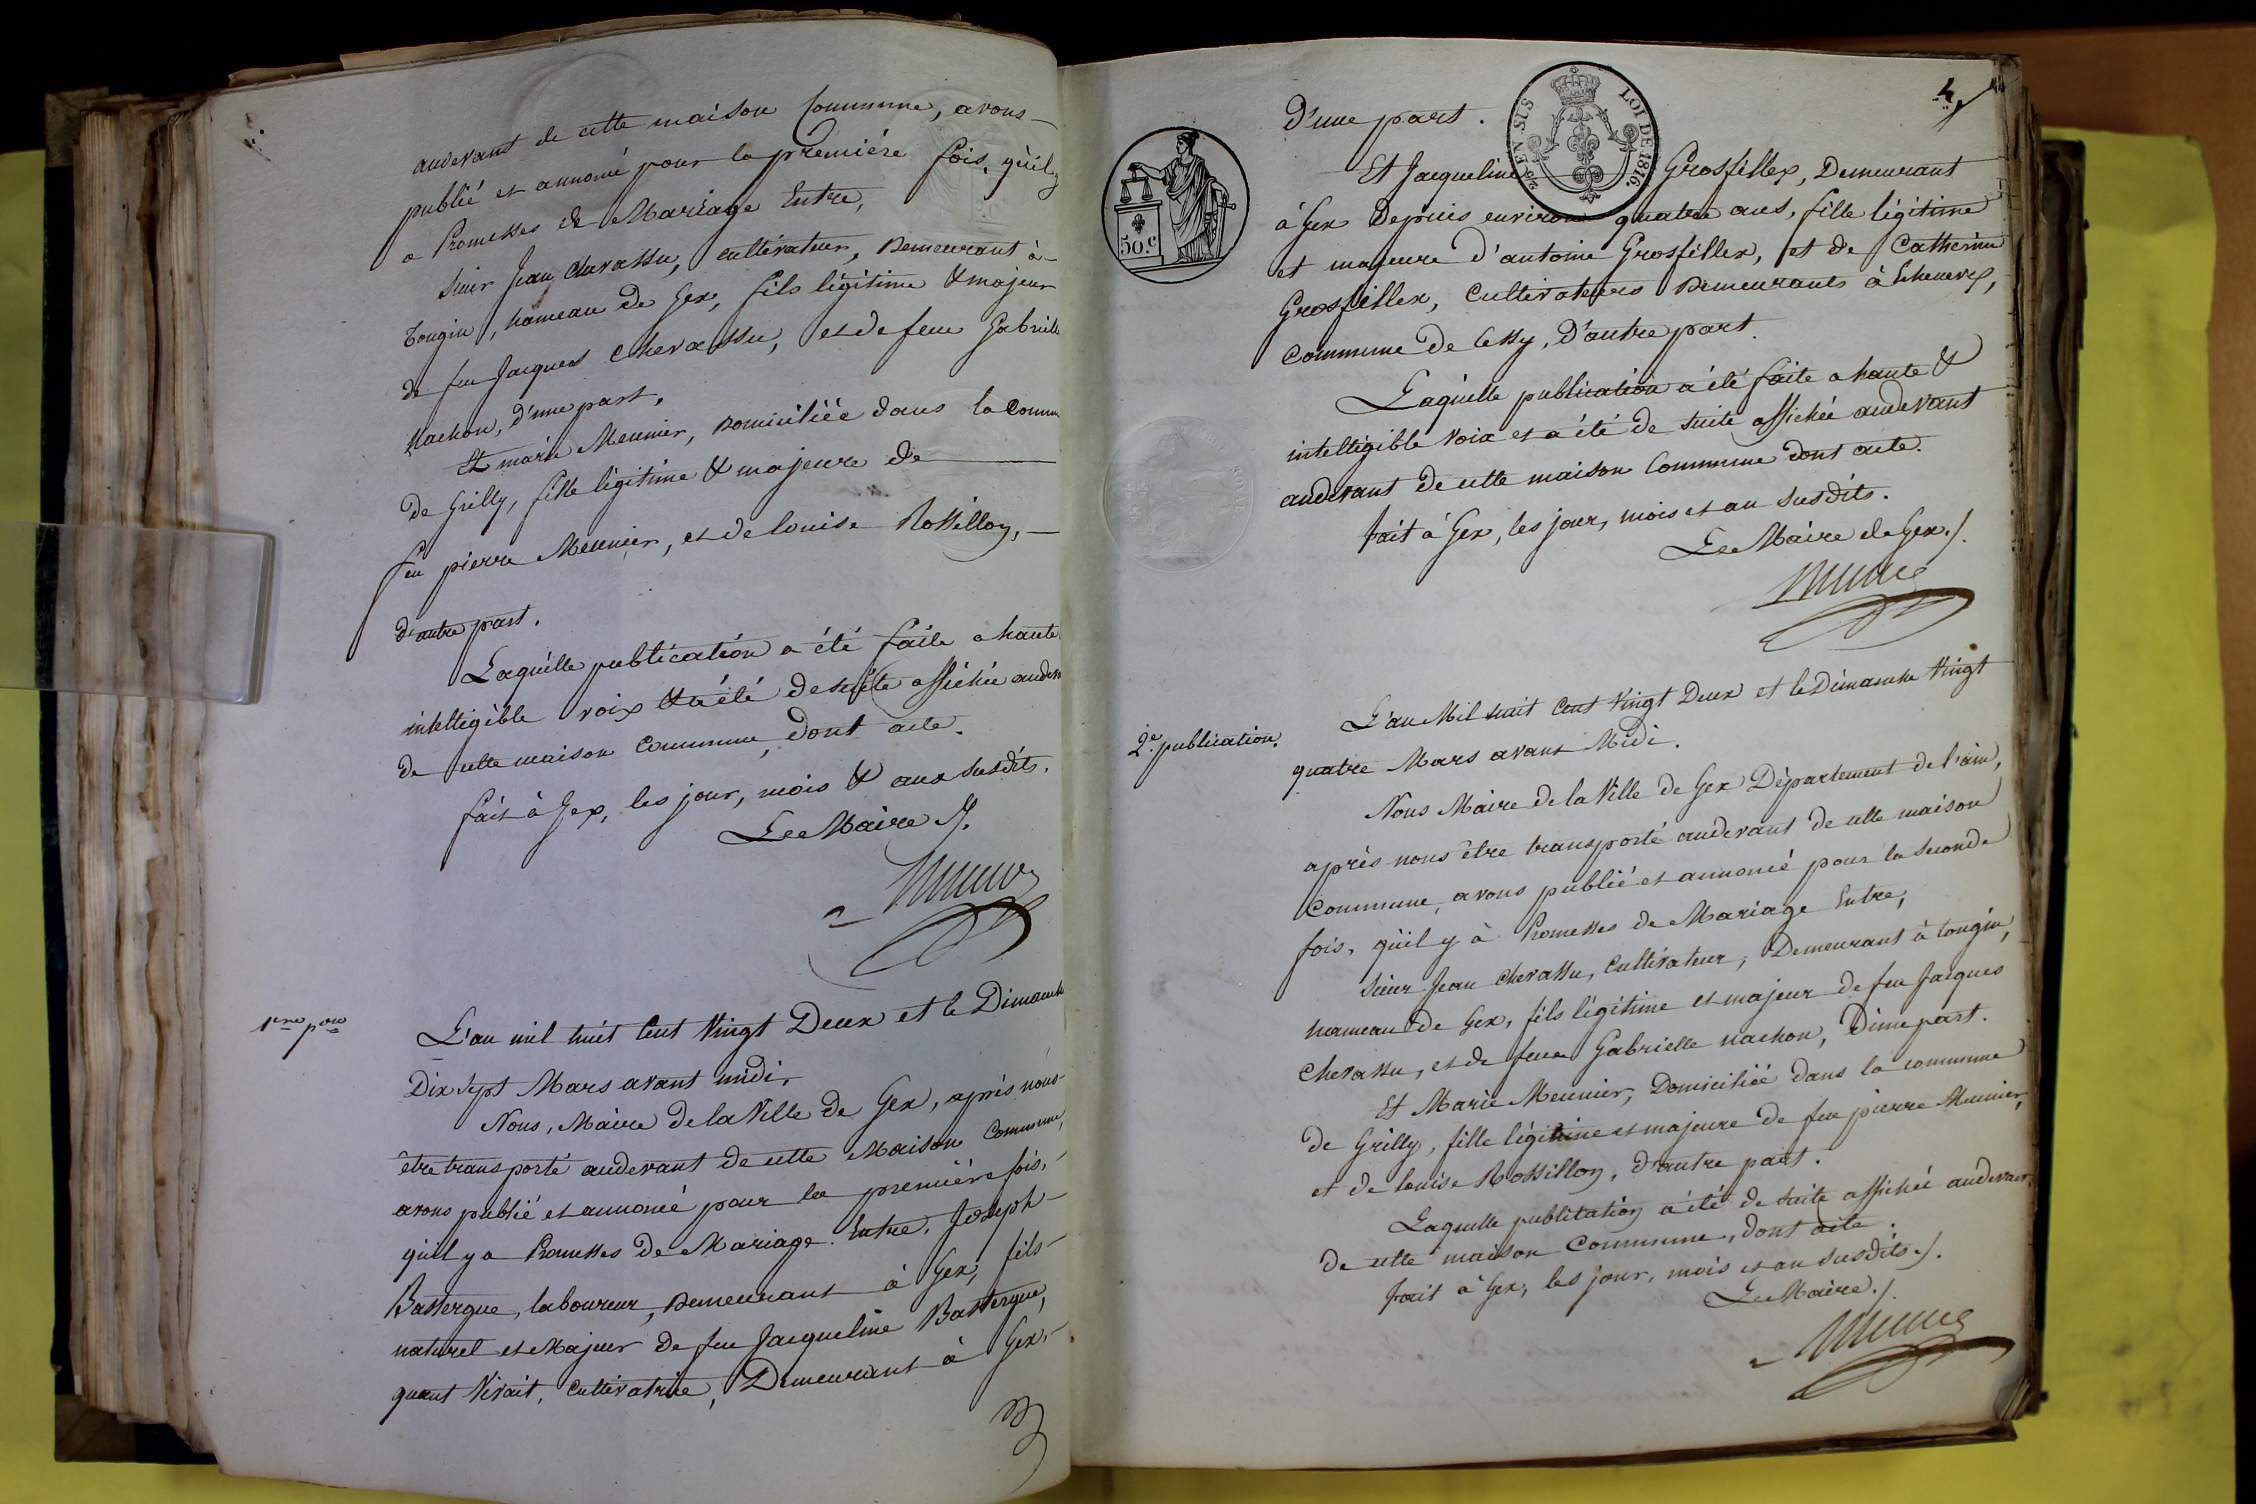 audevant de cette maison Commune, avons
publié et annoncé pour la première fois, qu'il y
a Promesses de Mariage Entre,
Sieur Jean Chevassu, cultivateur, Demeurant à
Tougin, hameau de Gex, fils légitime & majeur
de feu Jacques Chevassu, et de feue Gabrielle
Nachon, d'une part,
Et marie Meunier, Domiciliée dans la Commu
de Grilly, fille légitime & majeure de
feu pierre Meunier, et de louise Rossillon,
d'autre part.
Laquelle publication a été faite a haute
intelligible voix & a été de suite affichée audev
de cette maison Commune, dont acte.
fait à Gex, les jour, mois & an susdits.
Le Maire
1ere pon
L'an mil huit Cent Vingt Deux et le Dimanche
Dix sept Mars avant midi,
Nous, Maire de la Ville de Gex, après nous
être transporté audevant de cette Maison Commune,
avons publié et annoncé pour la première fois,
qu'il y a Promesses de Mariage Entre, Joseph
Bassergue, laboureur, Demeurant à Gex, fils
naturel et Majeur de feu Jacqueline Bassergue,
quant Vivait, Cultivatrice, Demeurant à Gex,
4
50.C
LOI DE 1816.
EN SUS
d'une part.
Et Jacqueline Grosfillex, Demeurant
à Gex Depuis environ quatre ans, fille légitime
et majeure d'antoine Grosfillex, et de Catherine
Grosfillex, Cultivateurs Demeurants à Echenevex,
Commune de Cessy, D'autre part.
Laquelle publication a été faite a haute &
intelligible voix et a été de suite affichée audevant
audevant de cette maison Commune dont acte.
fait à Gex, les jour, mois et an susdits.
Le Maire de Gex./.
2e publication.
L'an Mil huit Cent Vingt Deux et le Dimanche Vingt
quatre Mars avant Midi.
Nous Maire de la Ville de Gex Département de l'ain,
après nous être transporté audevant de cette maison
Commune, avons publié et annoncé pour la seconde
fois, qu'il y à Promesses de Mariage Entre,
Sieur Jean Chevassu, Cultivateur, Demeurant à tougin,
hameau de Gex, fils légitime et majeur de feu Jacques
Chevassu, et de feue Gabrielle nachon, D'une part.
Et Marie Meunier, Domiciliée dans la commune
de Grilly, fille légitime et majeure de feu pierre Meunier,
et de louise Rossillon, d'autre part.
Laquelle publication a été de suite affichée audevant
de cette maison Commune, dont acte.
fait à Gex, les jour, mois et an susdits./.
Le Maire./.